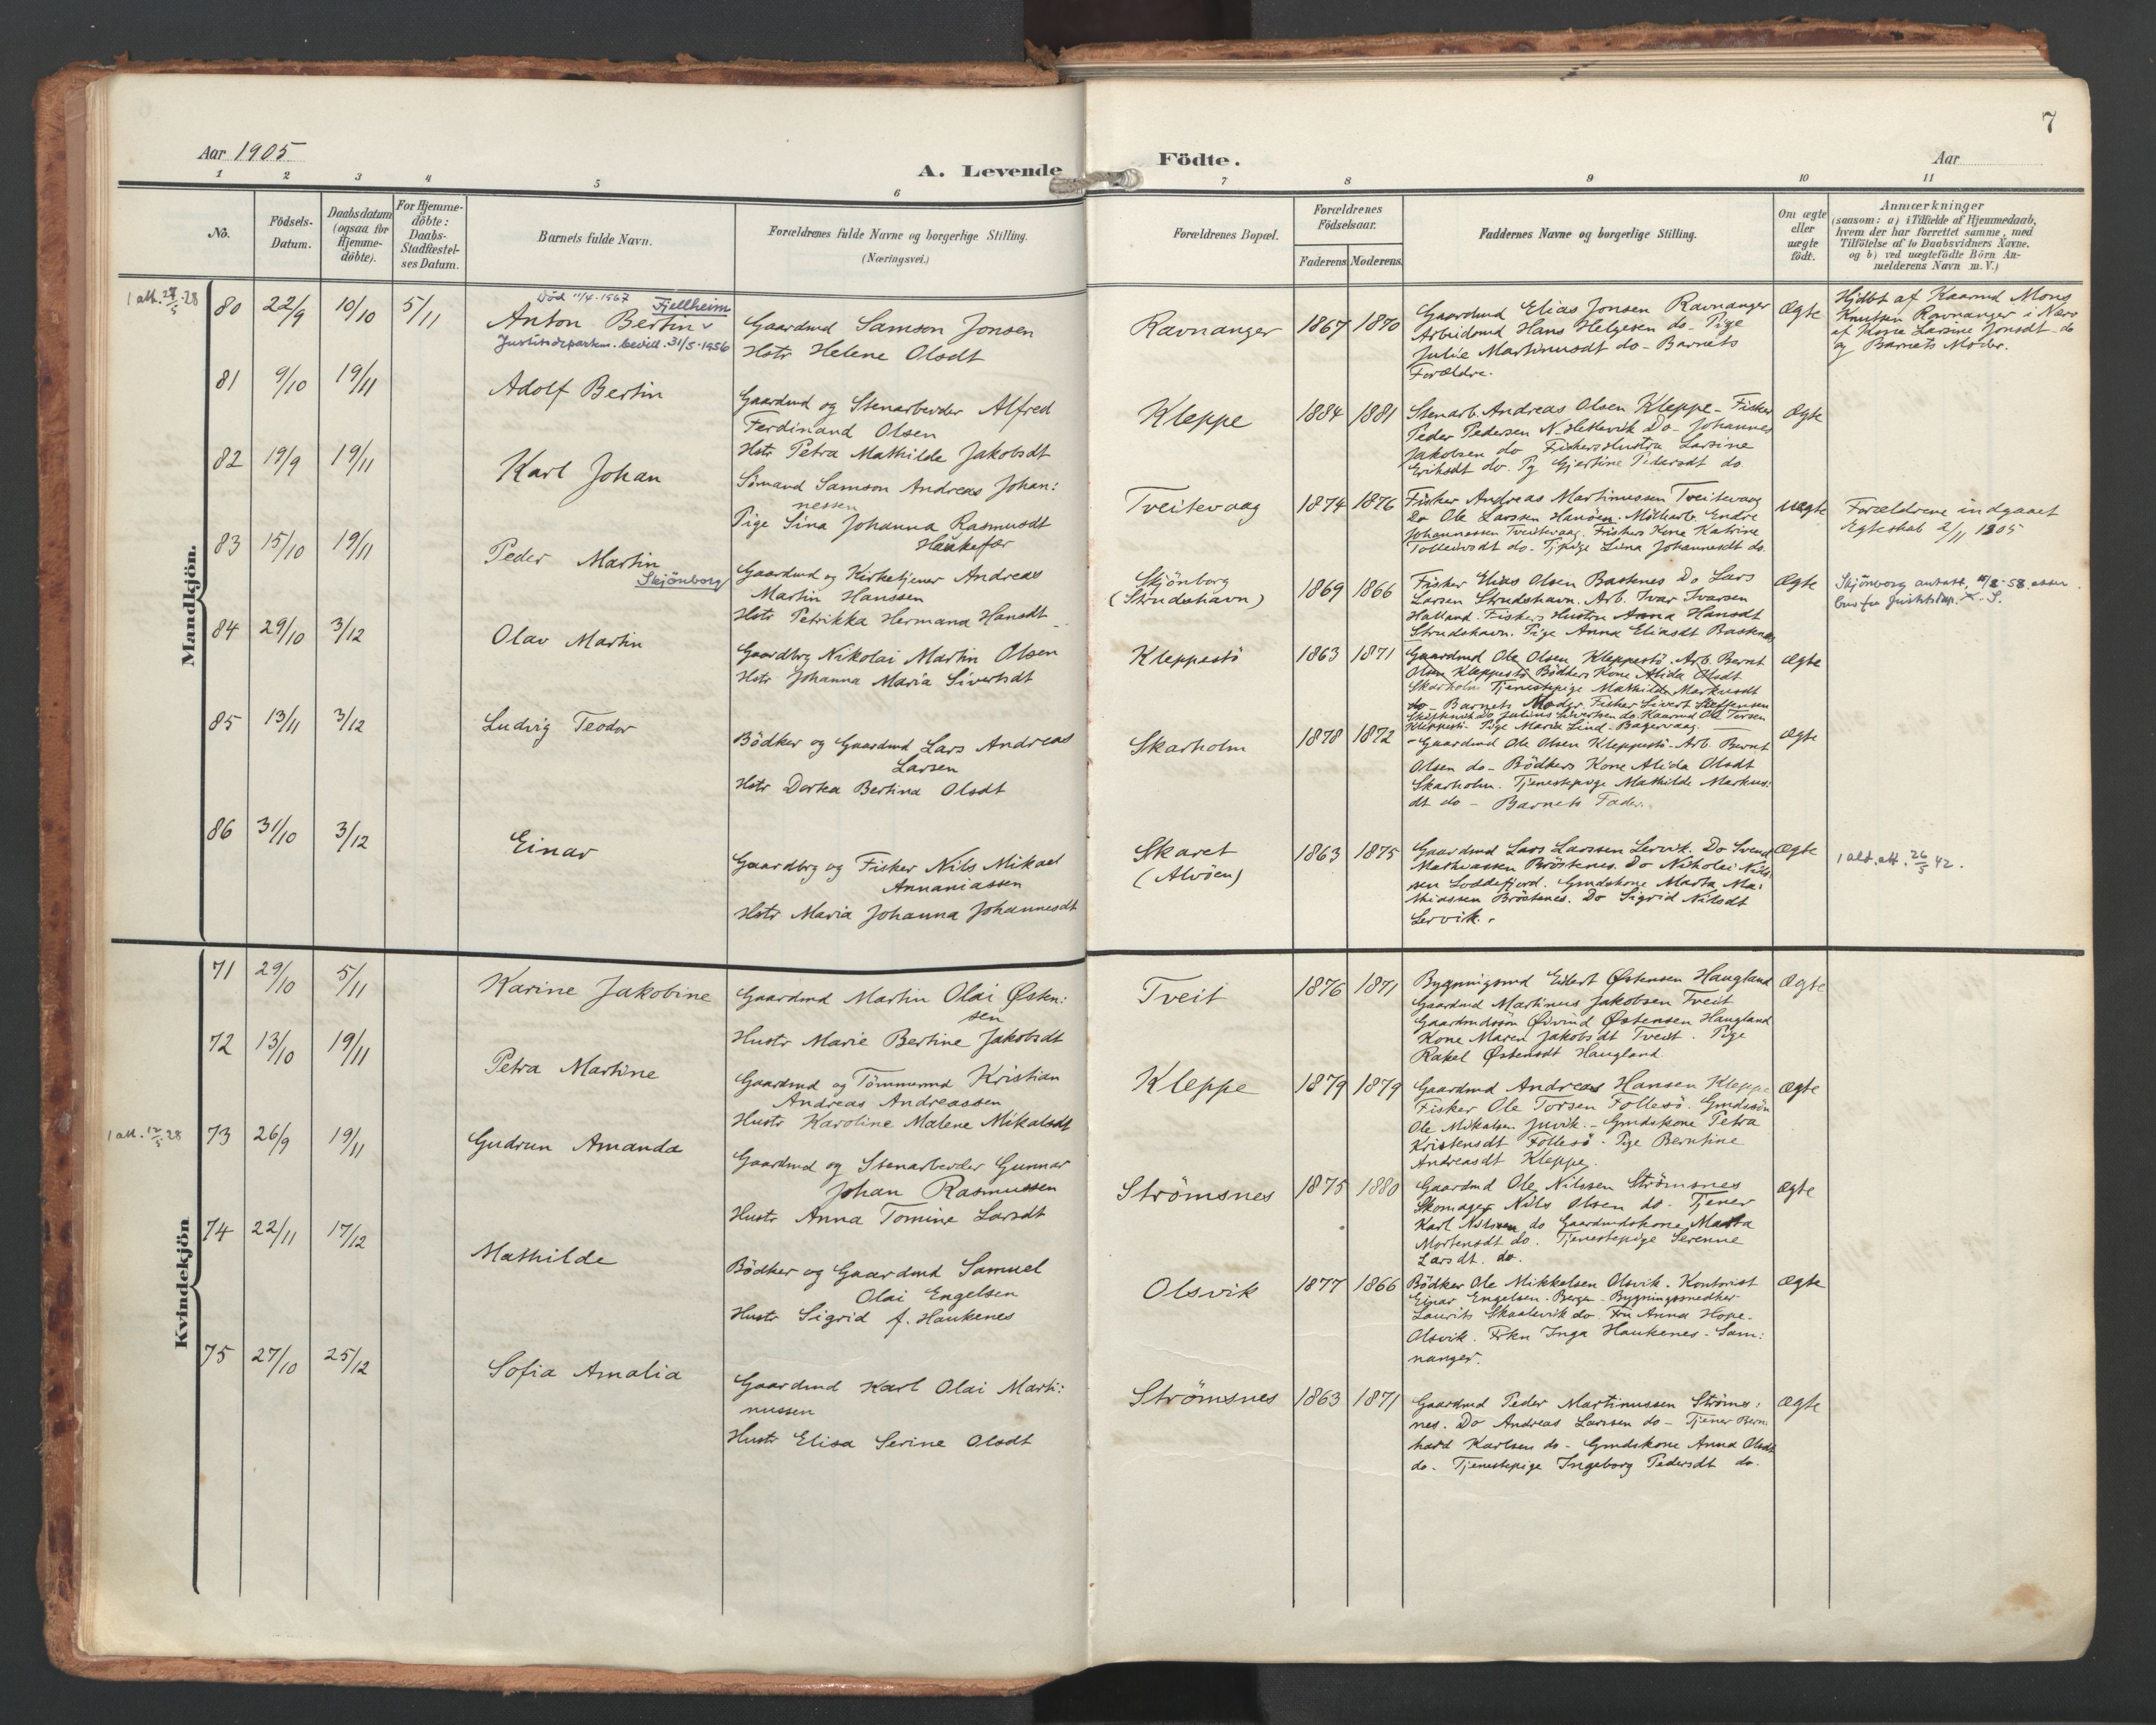 Aar 1905
A. Levende
1 2 3 4 5 6
No.
Födsels-
Datum.
Daabsdatum
(ogsaa for
Hjemme-
döbte).
For Hjemme-
döbte:
Daabs-
Stadfæstel-
ses Datum.
Barnets fulde Navn.
Forældrenes fulde Navne og borgerlige Stilling.
(Næringsvei.)
Mandkjön.
1 att. 28
80 22/9 10/10 5/11
Död 11/4-1967 Fjellheim
Anton Bertin
Justisdepartm. bevill. 31/5-1956
Gaardmd Samson Jonsen
Hstr Helene Olsdt
81 9/10 19/11
Adolf Bertin
Gaardmd og Stenarbeider Alfred
Ferdinand Olsen
Hstr Petra Mathilde Jakobsdt
82 19/9 19/11
Karl Johan
Sömand Samson Andreas Johan:
nessen
Pige Sina Johanna Rasmusdt
Haukefær
83 15/10 19/11
Peder Martin
Skjönborg
Gaardmd og Kirketjener Andreas
Martin Hanssen
Hstr Petrikka Hermana Hansdt
84 29/10 3/12
Olav Martin
Gaardbrg Nikolai Martin Olsen
Hstr Johanna Maria Sivertsdt
85 13/11 3/12
Ludvig Teodor
Bödker og Gaardmd Lars Andreas
Larsen
Hstr Dortea Bertina Olsdt
86 31/10 3/12
Einar
Gaardbrg og Fisker Nils Mikael
Annaniassen
Hstr Maria Johanna Johannesdt
Kvindekjön
71 29/10 5/11
Karine Jakobine
Gaardmd Martin Olai Østen:
sen
Hustr Marie Bertine Jakobsdt
72 13/10 19/11
Petra Martine
Gaardmd og Tömmermd Kristian
Andreas Andreassen
Hustr Karoline Malene Mikalsdt
1 att. 12/5 28
73 26/9 19/11
Gudrun Amanda
Gaardmd og Stenarbeider Gunnar
Johan Rasmussen
Hustr Anna Tomine Larsdt
74 22/11 17/12
Mathilde
Bödker og Gaardmd Samuel
Olai Engelsen
Hustr Sigrid f. Haukenes
75 27/10 25/12
Sofia Amalia
Gaardmd Karl Olai Marti:
nussen
Hustr Elisa Serine Olsdt
7
Födte.
Aar
7 8 9 10 11
Forældrenes Bopæl.
Forældrenes
Födselsaar.
Faderens Moderens.
Faddernes Navne og borgerlige Stilling.
Om ægte
eller
uægte
födt.
Anmærkninger
(saasom: a) i Tilfælde af Hjemmedaab,
hvem der har forrettet samme, med
Tilföielse af to Daabsvidners Navne.
og b) ved uægtefödte Börn An-
melderens Navn m. V.)
Ravnanger 1867 1870
Gaardmd Elias Jonsen Ravnanger
Arbeidsmd Hans Helgesen do- Pige
Julie Martinusdt do- Barnets
Forældre.
Ægte
Hjdbt af Kaarmd Mons
Knutsen Ravnanger i Nærv
af Kone Larsine Jonsdt do
og Barnets Moder.
Kleppe 1884 1881
Stenarb. Andreas Olsen Kleppe- Fisker
Peder Pedersen N-Hetlevik Do- Johannes
Jakobsen do Fiskers Hustru Larsine
Eriksdt do. Pg Gjertine Pedersdt do
Ægte
Tveitevaag 1874 1876
Fisker Andreas Martinussen Tveitevaag
Do Ole Larssen Hanöen. Möllearb. Endre
Johannessen Tveitevaag. Fiskers Kone Katrine
Tolleivsdt do. Tj.pige Lina Johannesdt do.
uægte
Forældrene indgaaet
Egteskab 2/11 1905
Skjönborg
(Strudshavn) 1869 1866
Fisker Elias Olsen Bakenes Do Lars
Larsen Strudshavn. Arb. Ivar Ivarsen
Halland. Fiskers Hustru Anna Hansdt
Strudshavn. Pige Anna Eliasdt Bakenes
Ægte
Skjönborg antatt 15/8-58 etter
bev fra Justisdep.
Kleppestö 1863 1871
Gaardmd Ole Olsen Kleppestö. Arb. Bernt
Olsen Kleppestö Bödkers Kone Alida Olsdt
Skarholm Tjenestepige Mathilde Markusdt
do - Barnets Moder. Fisker Sivert Steffensen
Do Julius Sivertsen do. Kaarmd Ole Torsen
Kleppestö. Pige Maria Lind-Bagervaag
Ægte
Skarholm 1878 1872
- Gaardmd Ole Olsen Kleppestö- Arb. Bernt
Olsen do- Bödkers Kone Alida Olsdt
Skarholm. Tjenestepige Mathilde Markus:
dt do - Barnets Fader.
Ægte
Skaret
(Alvöen) 1863 1875
Gaardmd Lars Larssen Lervik. Do Svend
Mathiassen Bröstenes. Do Nikolei Nils:
sen Loddefjord. Gmdskone Marta Ma:
thiassen Bröstenes. Do Sigrid Nilsdt
Lervik.
Ægte
1 ald. att. 26/5 42.
Tveit 1876 1871
Bygningsmd Eilert Østensen Haugland
Gaardmd Martinus Jakobsen Tveit
Gaardmdssön Öivind Østensen Haugland
Kone Maren Jakobsdt Tveit. Pige
Rakel Østensdt Haugland
Ægte
Kleppe 1879 1879
Gaardmd Andreas Hansen Kleppe
Fisker Ole Torsen Follesö. Gmdssön
Ole Mikalsen Juvik.- Gmdskone Petra
Kristensdt Follesö. Pige Berntine
Andreasdt Kleppe.
Ægte
Strömsnes 1875 1880
Gaardmd Ole Nilssen Strömsnes
Skomager Nils Olsen do. Tjener
Karl Nilssen do Gaardmdskone Marta
Mortensdt do. Tjenestepige Serenne
Larsdt. do.
Ægte
Olsvik 1877 1866
Bödker Ole Mikkelsen Olsvik. Kontorist
Einar Engelsen-Bergen-Bygningssnedker
Laurits Skaalevik do. Fru Anna Hope-
Olsvik. Frkn Inga Haukenes-Sam:
nanger.
Ægte
Strömsnes 1863 1871
Gaardmd Peder Martinussen Strömes:
nes. Do Andreas Larssen do- Tjener Bern
hard Karlsen do- Gmdskone Anna Olsdt
do- Tjenestepige Ingeborg Pedersdt do.
Ægte